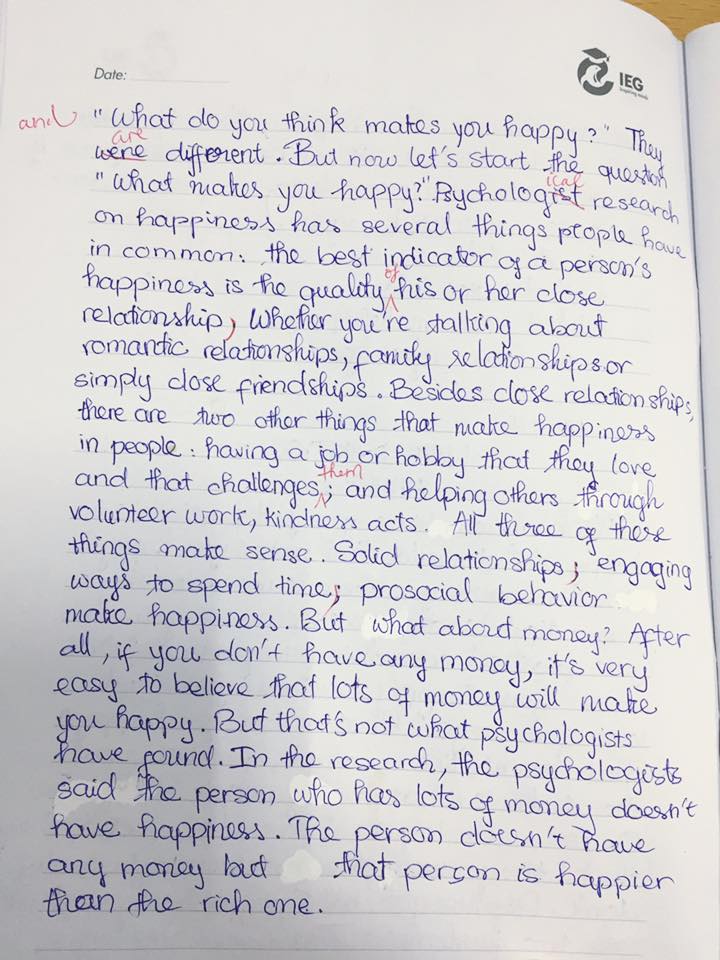 Date:
IEG
Inspiring minds
and "What do you think makes you happy?" They
are
were different. But now let's start the question
ical
"What makes you happy?" Psychologist research
on happiness has several things people have
in common: the best indicator of a person's
of
happiness is the quality his or her close
relationship; Whether you're stalking about
romantic relationships, family relationships or
simply close friendships. Besides close relationships,
there are two other things that make happiness
in people: having a job or hobby that they love
them
and that challenges; and helping others through
volunteer work, kindness acts. All three of these
things make sense. Solid relationships; engaging
ways to spend time; prosocial behavior
make happiness. But what about money? After
all, if you don't have any money, it's very
easy to believe that lots of money will make
you happy. But that's not what psychologists
have found. In the research, the psychologists
said the person who has lots of money doesn't
have happiness. The person doesn't have
any money but that person is happier
than the rich one.